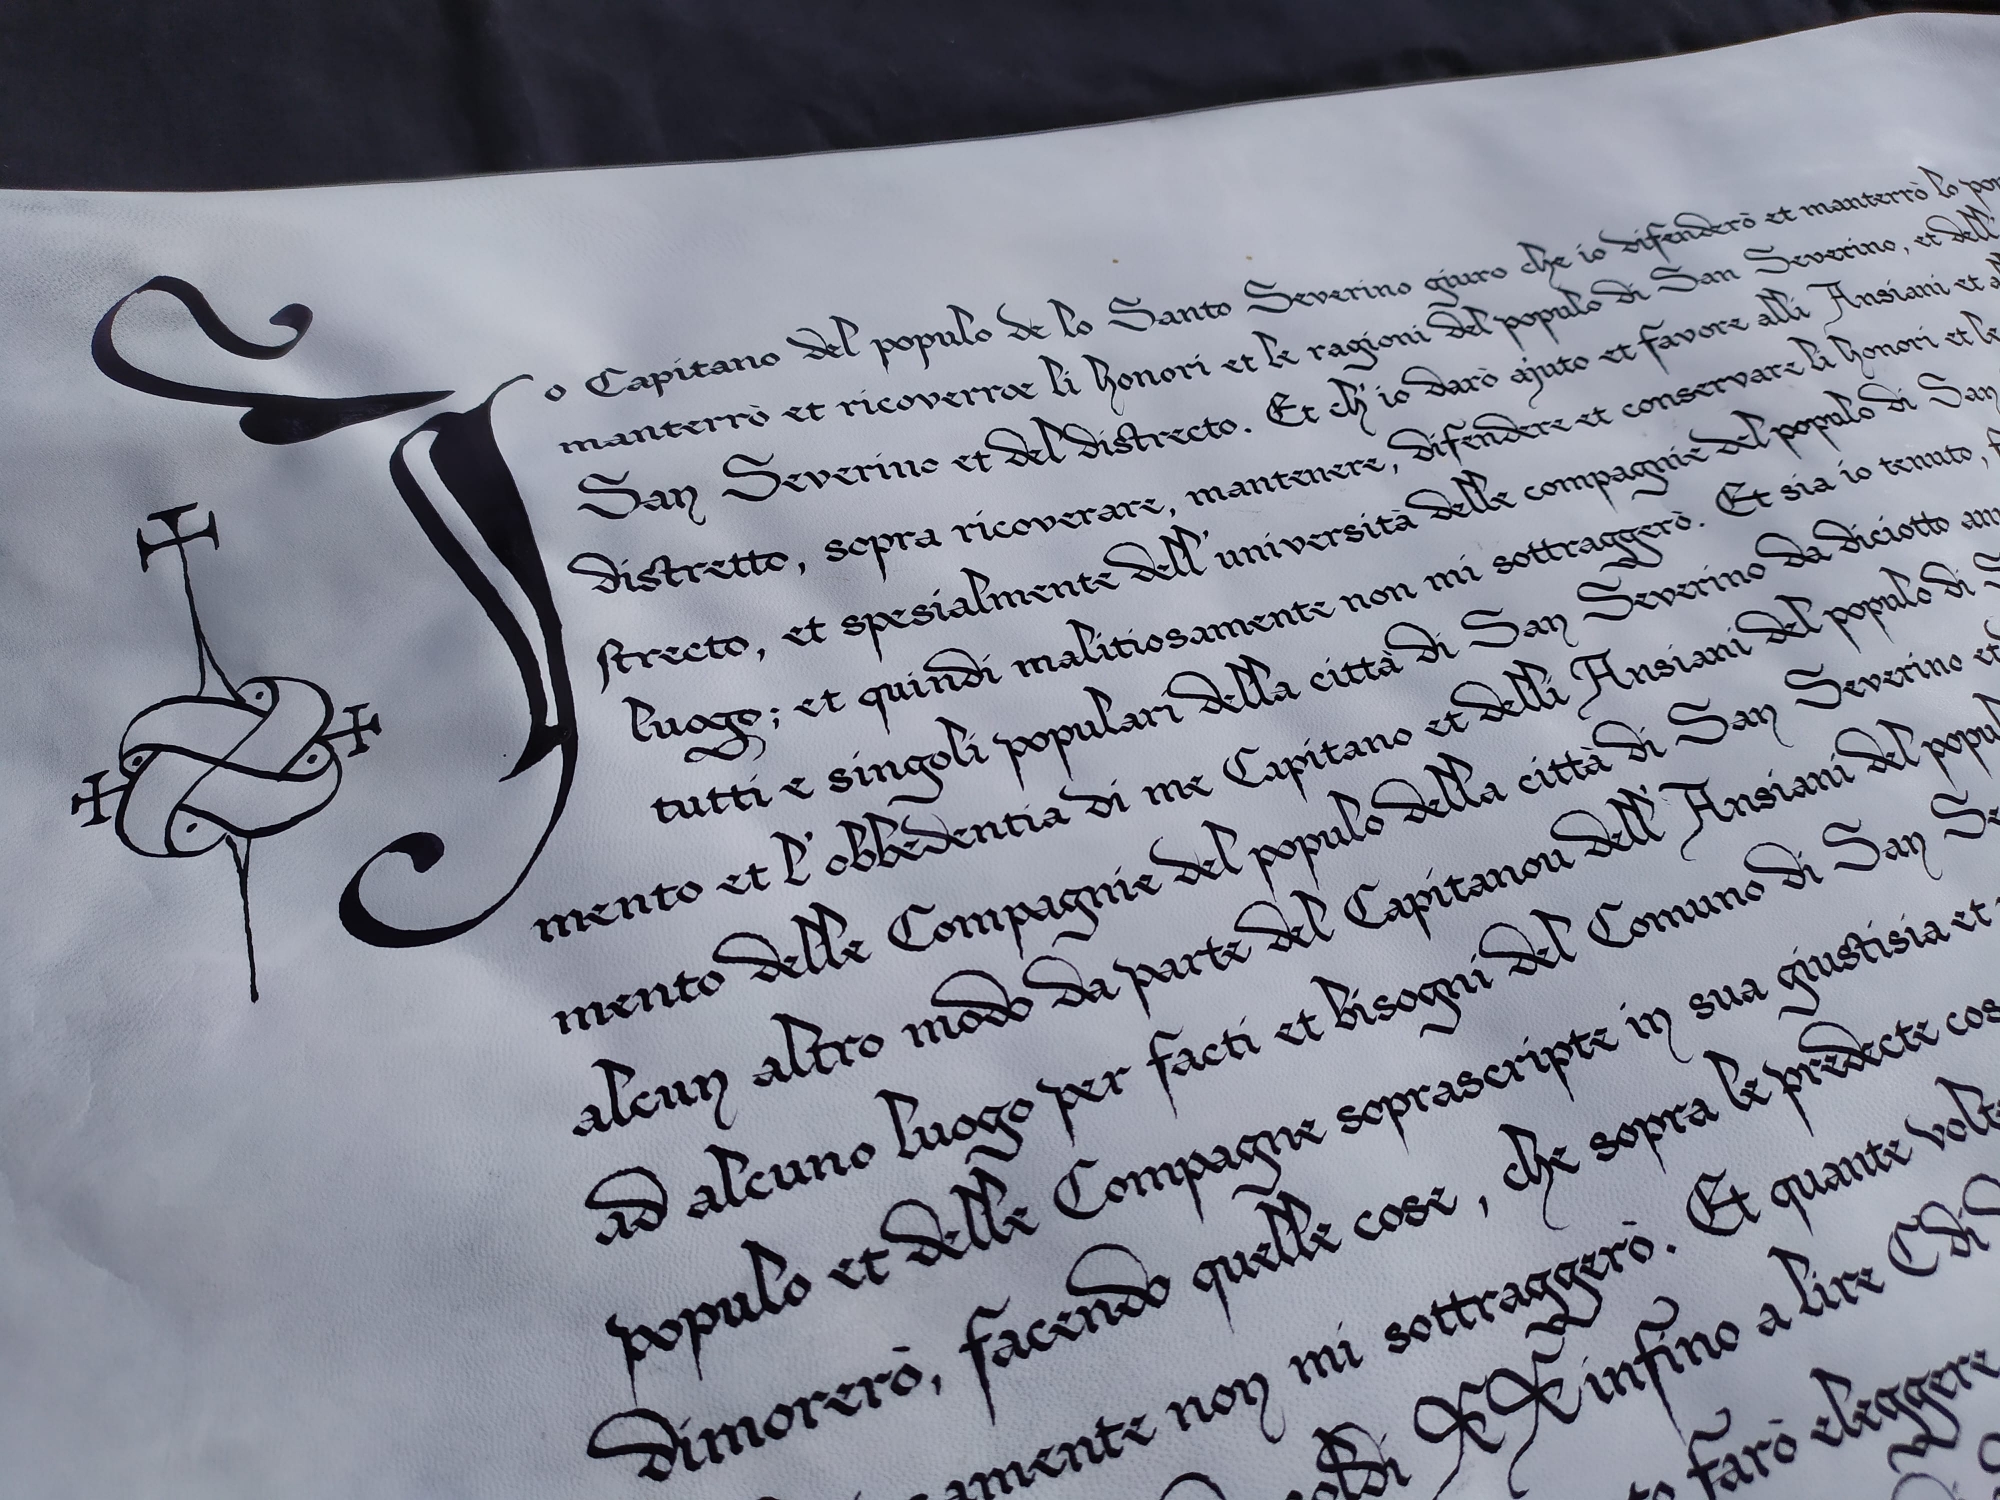 Io Capitano del populo de lo Santo Severino giuro che io difenderò et manterrò lo
manterrò et ricoverroe li honori et le ragioni del populo di San Severino, et dell'
San Severino et del distrecto. Et ch'io darò ajuto et favore alli Ansiani et
distretto, sopra ricoverare, mantenere, difendere et conservare li honori et le
strecto, et spesialmente dell'università delle compagnie del populo di San
luogo; et quindi malitiosamente non mi sottraggerò. Et sia io tenuto,
tutti e singoli populari della città di San Severino da diciotto
mento et l'obbedentia di me Capitano et delli Ansiani del populo di
mento delle Compagnie del populo della città di San Severino et
alcun altro modo da parte del Capitanou dell'Ansiani del
ad alcuno luogo per facti et bisogni del Comuno di San
populo et delle Compagne soprascripte in sua giustisia et
dimorerò, facendo quelle cose, che sopra le predecte
non mi sottraggerò. Et quante
XX infino a lire C di
farò eleggere